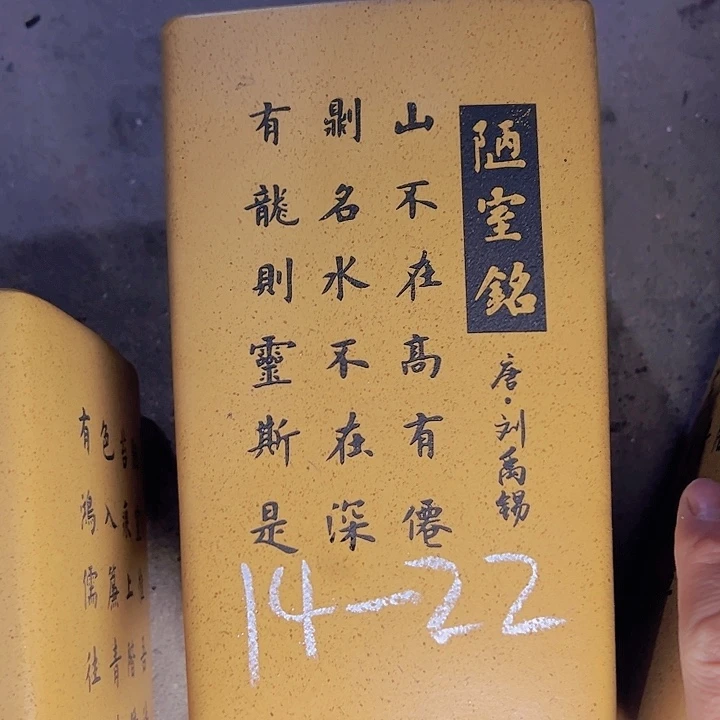 陋室銘
唐·刘禹锡
山不在高有僊
剿名水不在深
有龍則靈斯是
14-22
色入簾青
有鴻儒往